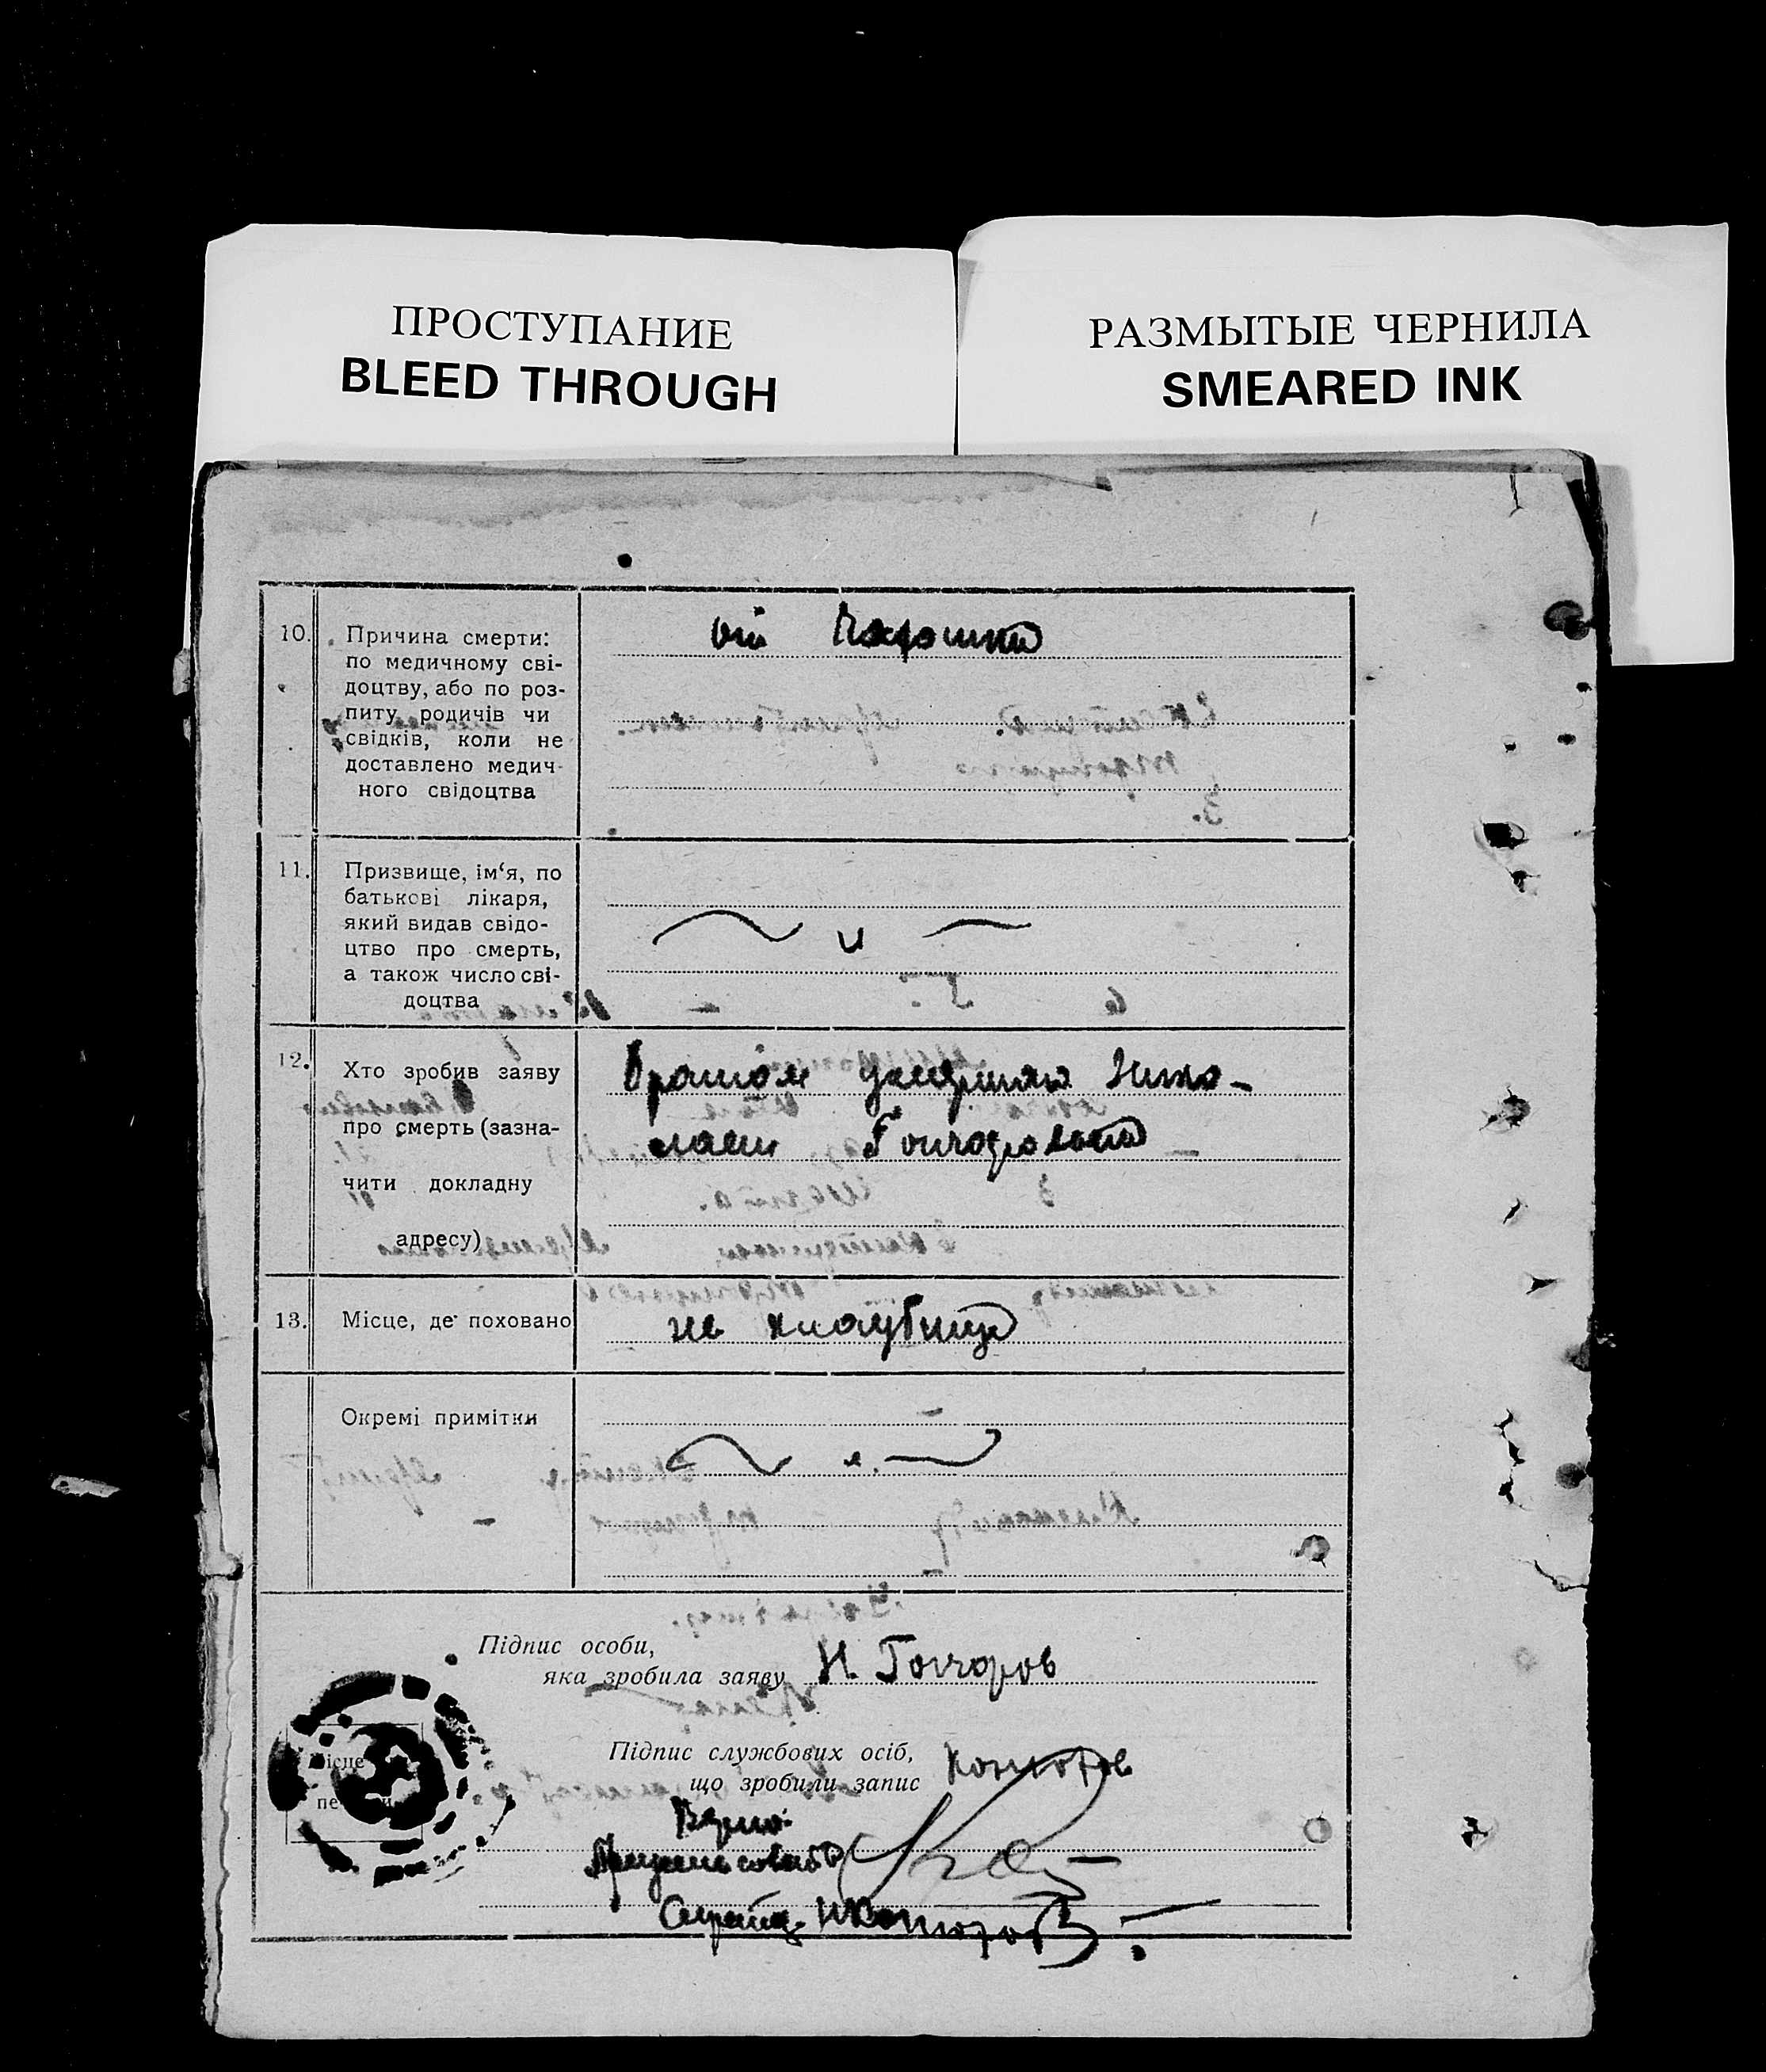 ПРОСТУПАНИЕ
BLEED THROUGH
РАЗМЫТЫЕ ЧЕРНИЛА
SMEARED INK
10.
Причина смерти:
по медичному сві-
доцтву, або по роз-
питу родичів чи
свідків, коли не
доставлено медич-
ного свідоцтва
11.
Призвище, ім‘я, по
батькові лікаря,
який видав свідо-
цтво про смерть,
а також число сві-
доцтва
и
12.
Хто зробив заяву
про смерть (зазна-
чити докладну
адресу)
братом умершаго Нико-
лаем Гончаровым
13.
Місце, де поховано
на кладбище
Окремі примітки
Підпис особи,
яка зробила заяву Н. Гончаров
Підпис службових осіб,
що зробили запис
Місце
печатки
Верно: